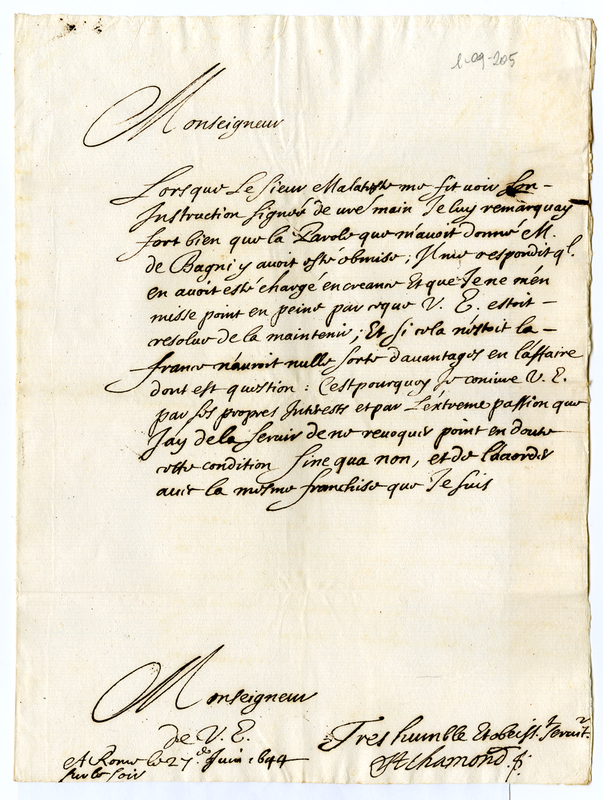 1-09-205
Monseigneur
Lorsque Le Sieur Malateste me fit voir Son
Instruction signée de vre main Je luy remarquay
fort bien que la Parole que m'avoit donné M.
de Bagni y avoit esté obmise; Il me respondit ql
en avoit esté chargé en creance Et que Je ne m'en
misse point en peine par ce que V. E. estoit
resolue de la maintenir; Et si cela n'estoit la
france n'auroit nulle sorte d'avantages en l'affaire
dont est question: C'est pourquoy Je coniure V. E.
par ses propres Interests et par L'extreme passion que
J'ay de la servir de ne revoquer point en doute
cette condition sine qua non, et de l'acorder
avec la mesme franchise que Je suis
Monseigneur
de V. E.
Tres humble Et obeisst. servitr.
A Rome le 27.e Juin 1644
sur le soir
St Chamond